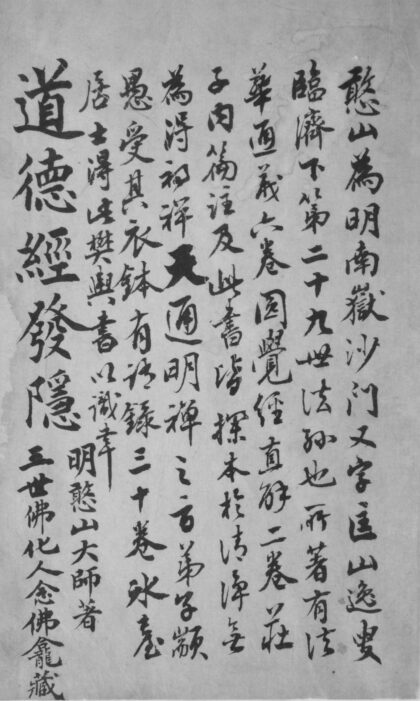 憨山為明南嶽沙门又字匡山逸叟
臨濟下第二十九世法孫也所著有法
華通義六卷圓覺經直解二卷莊
子内篇註及此書皆探本於清淨無
為得初禪天通明禪之旨弟子顓
愚受其衣鉢有語錄三十卷
居士得此樊輿書以識
道德經發隱
明憨山大師著
三世佛化人念佛龕藏